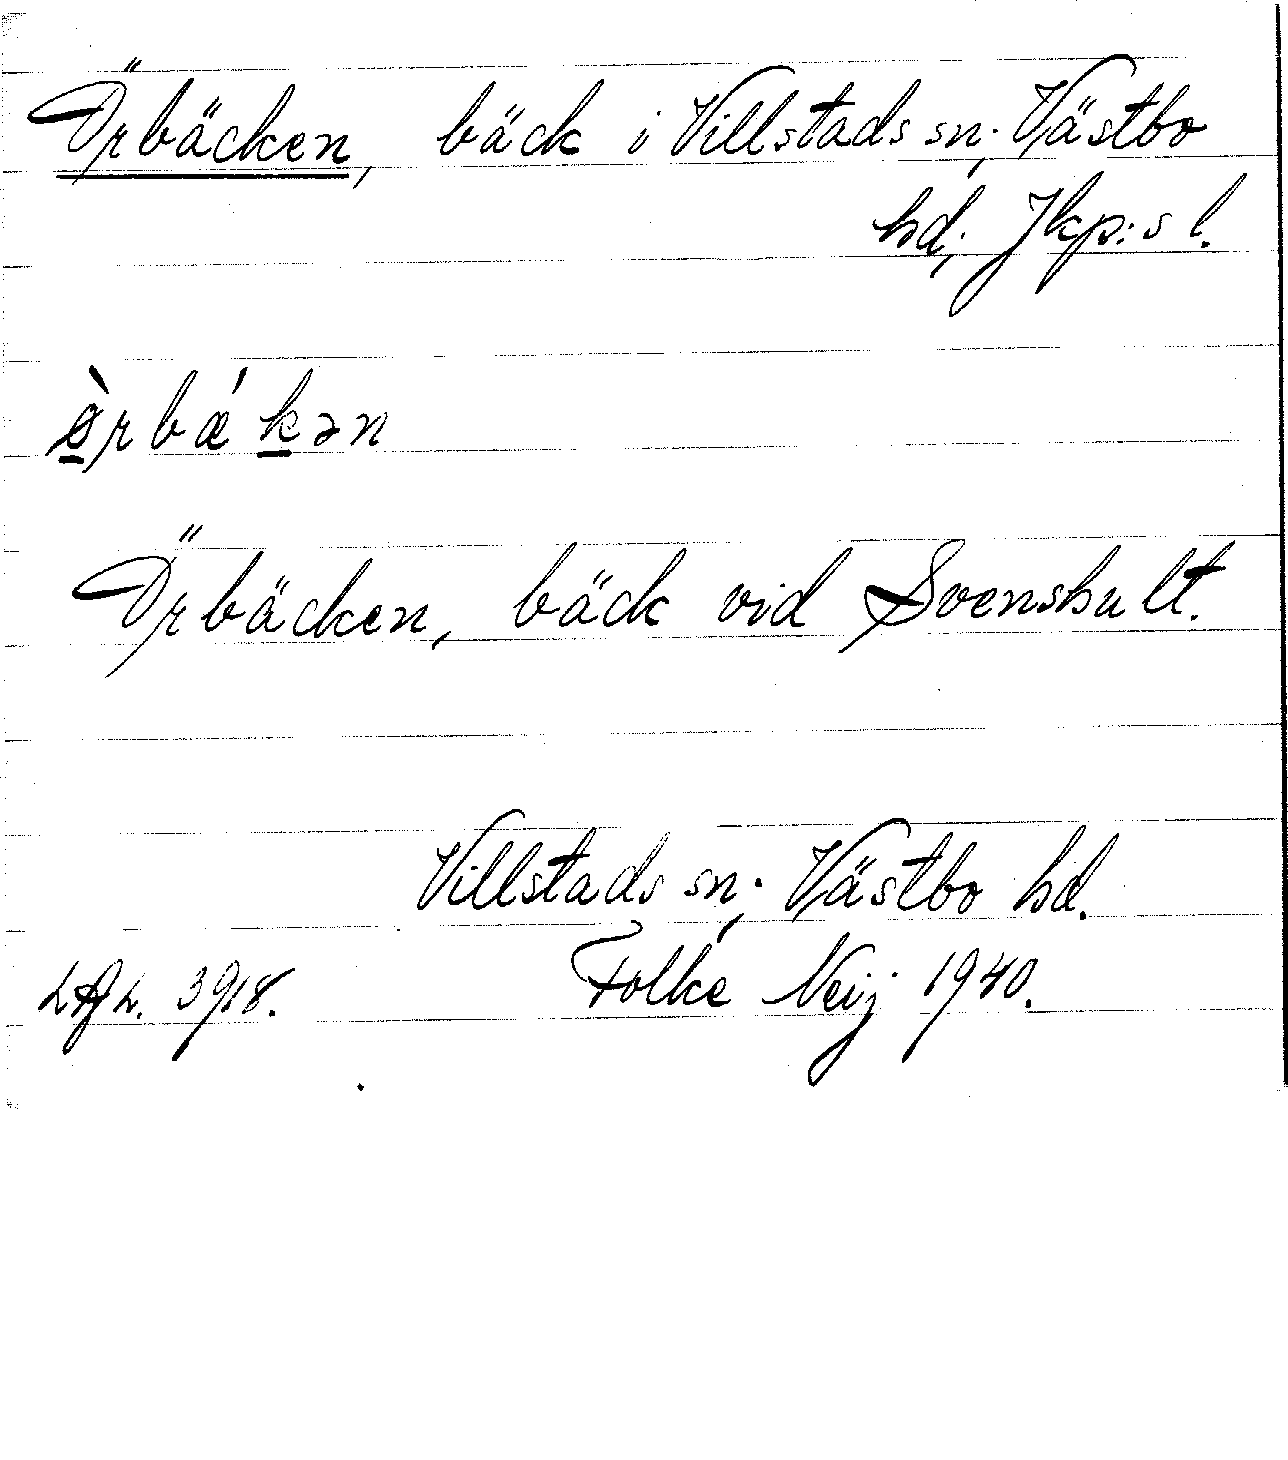 Örbäcken, bäck i Villstads sn; Västbo
hd; Jkp:s l.
ø̀rbǽkən
Örbäcken, bäck vid Svenshult.
Villstads sn; Västbo hd.
LAL. 3918. Folke Neij 1940.